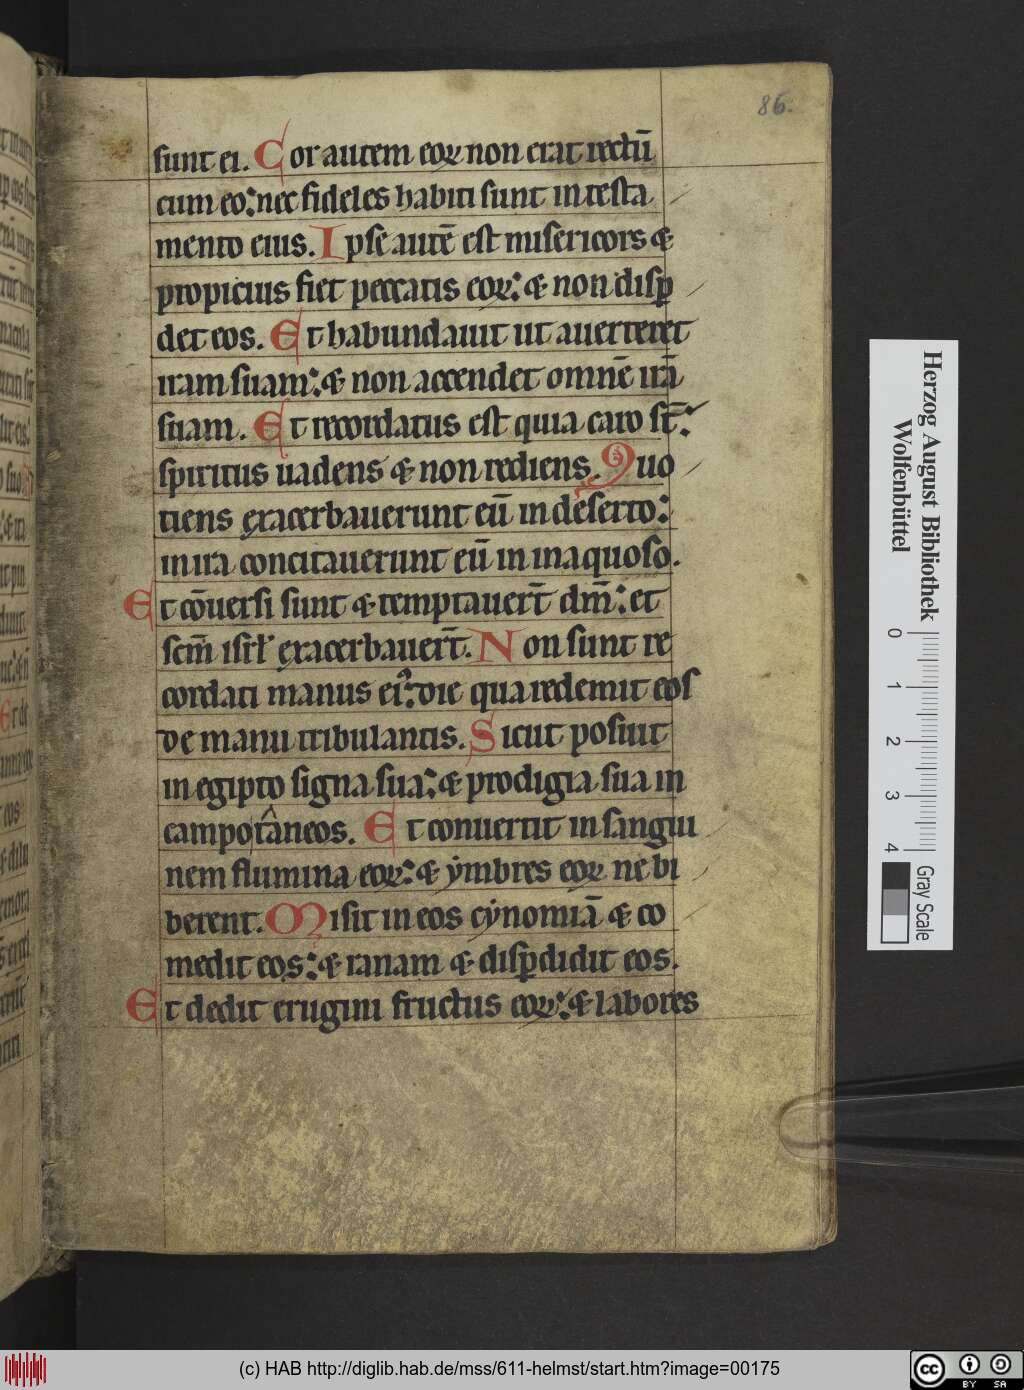 86.
sunt ei. Cor autem eoꝝ non erat rectū
cum eo: nec fideles habiti sunt in testa
mento eius. Ipse autē est misericors &
propicius fiet peccatis eoꝝ: & non disꝑ
det eos. Et habundauit ut auerteret
iram suam: & non accendet omnē irā
suam. Et recordatus est quia caro st̄:
spiritus uadens & non rediens. Quo
tiens exacerbauerunt eū in deserto:
in ira concitauerunt eū in inaquoso.
Et cōuersi sunt & temptauer̄t dm̄: et
scm̄ isrl' exacerbauer̄t. Non sunt re
cordati manus ei⁹: die qua redemit eos
de manu tribulantis. Sicut posuit
in egipto signa sua: & prodigia sua in
campo tâneos. Et conuertit in sangui
nem flumina eoꝝ: & ẏmbres eoꝝ ne bi
berent. Misit in eos cẏnomiā & co
medit eos: & ranam & disꝑdidit eos.
Et dedit erugini fructus eoꝝ: & labores
Herzog August Bibliothek
Wolfenbüttel
0 1 2 3 4
Gray Scale
(c) HAB http://diglib.hab.de/mss/611-helmst/start.htm?image=00175
cc BY SA